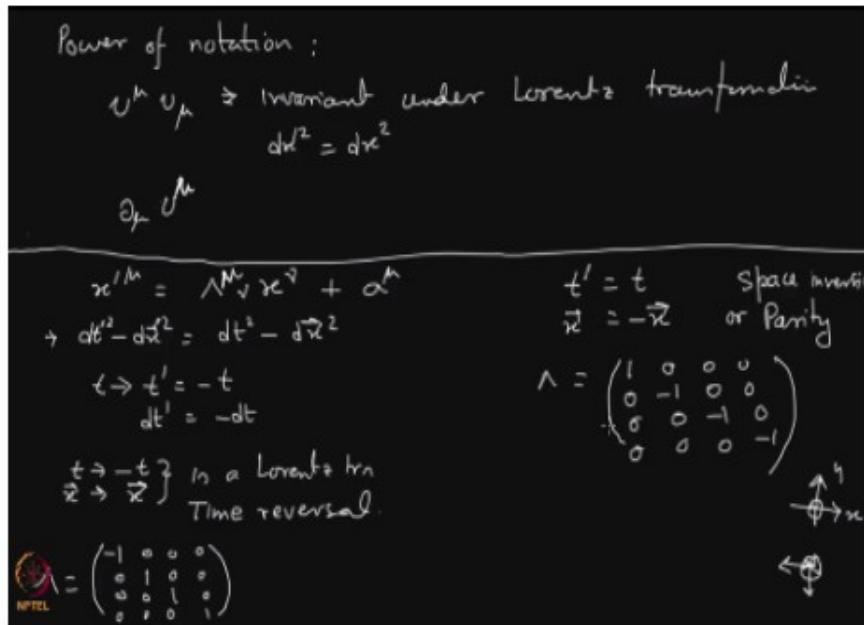 Power of notation :
v^μ v_μ → invariant under Lorentz
dx'^2 = dx^2
∂_μ v^μ
x'^μ = Λ^μ_ν x^ν + a^μ
→ dt'^2 - dx⃗'^2 = dt^2 - dx⃗^2
t → t' = -t
dt' = -dt
t → -t }
x⃗ → x⃗ } is a Lorentz trn
Time reversal.
Λ = ( -1 0 0 0
0 1 0 0
0 0 1 0
0 0 0 1 )
NPTEL
t' = t Space inversi
x⃗ = -x⃗ or Parity
Λ = ( 1 0 0 0
0 -1 0 0
0 0 -1 0
0 0 0 -1 )
y
x